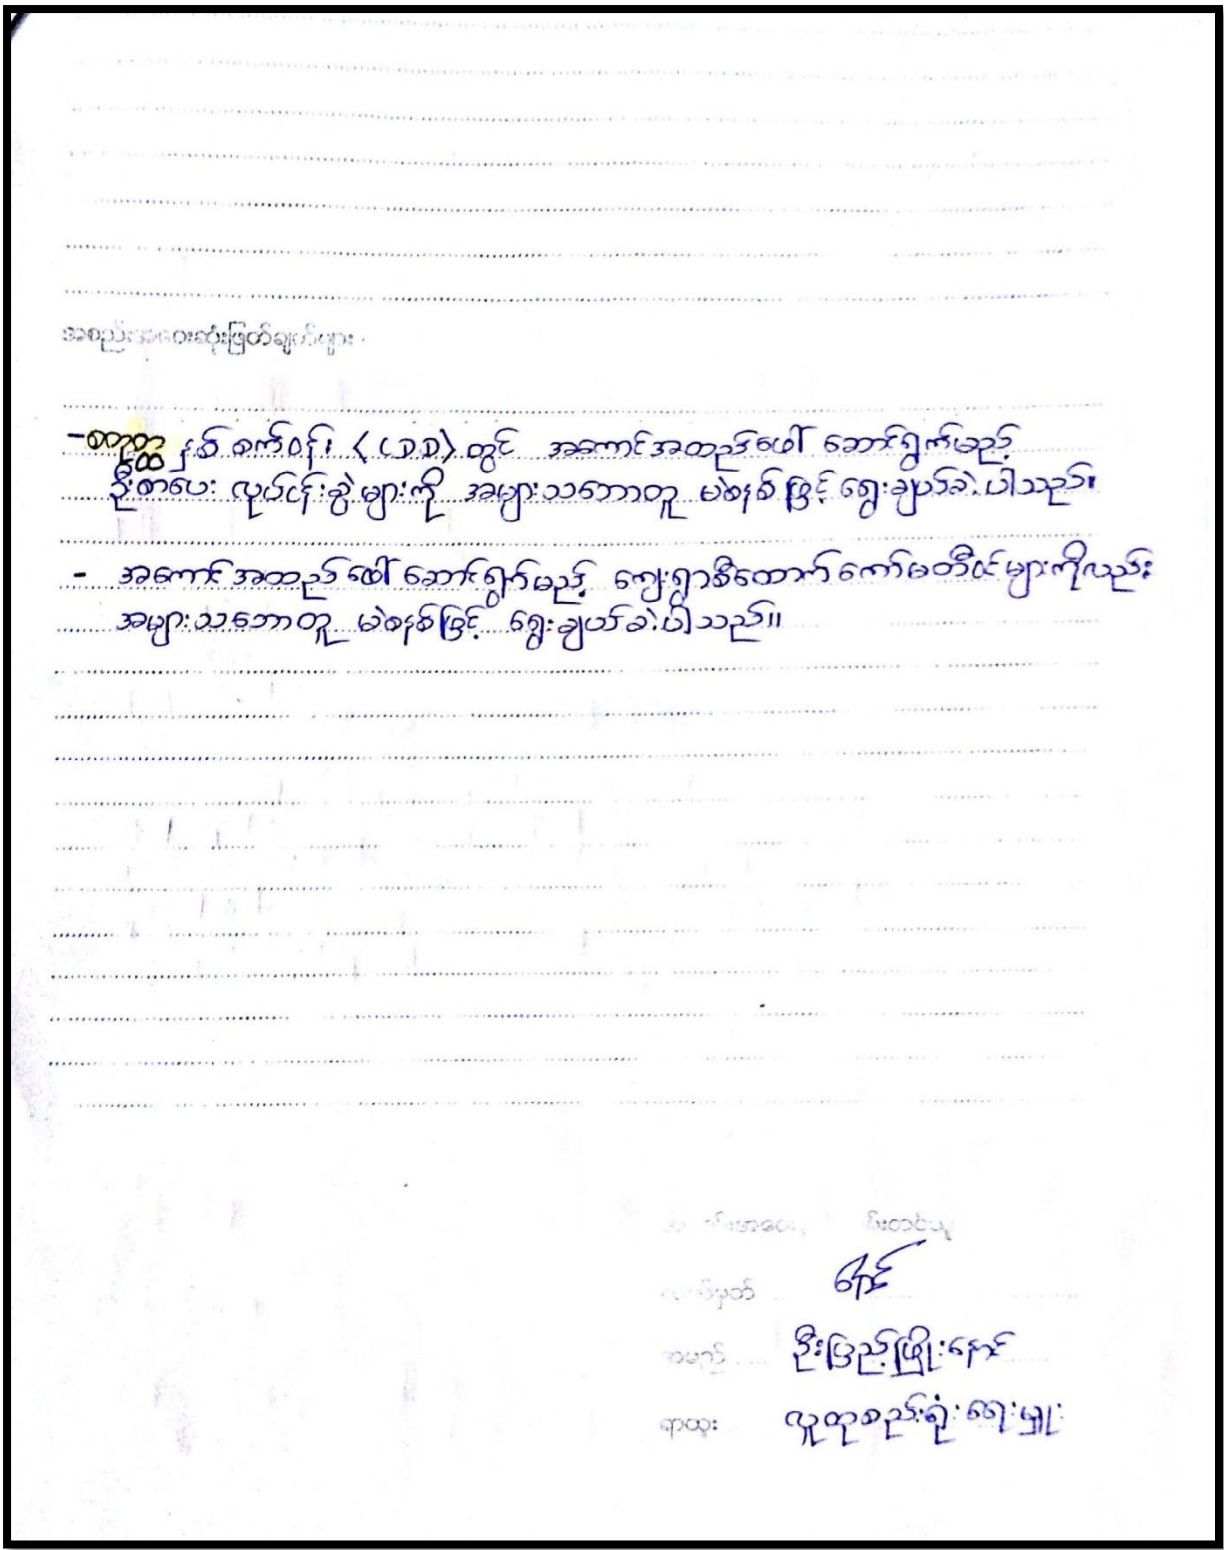 အစည်းအဝေးဆုံးဖြတ်ချက်များ
- စတုတ္ထ နှစ်စက်ဝန်း (CDD) တွင် အကောင်အထည်ဖေါ် ဆောင်ရွက်မည့်
ဦးစားပေး လုပ်ငန်းခွဲများကို အများသဘောတူ မဲစနစ်ဖြင့် ရွေးချယ်ခဲ့ပါသည်။
- အကောင်အထည်ဖေါ် ဆောင်ရွက်မည့် ကျေးရွာစီထောက်ကော်မတီဝင်များကိုလည်း
အများသဘောတူ မဲစနစ်ဖြင့် ရွေးချယ်ခဲ့ပါသည်။
လက်မှတ်
အမည် ဦးပြည့်ဖြိုးနောင်
ရာထူး လူထုစည်းရုံးရေးမှူး